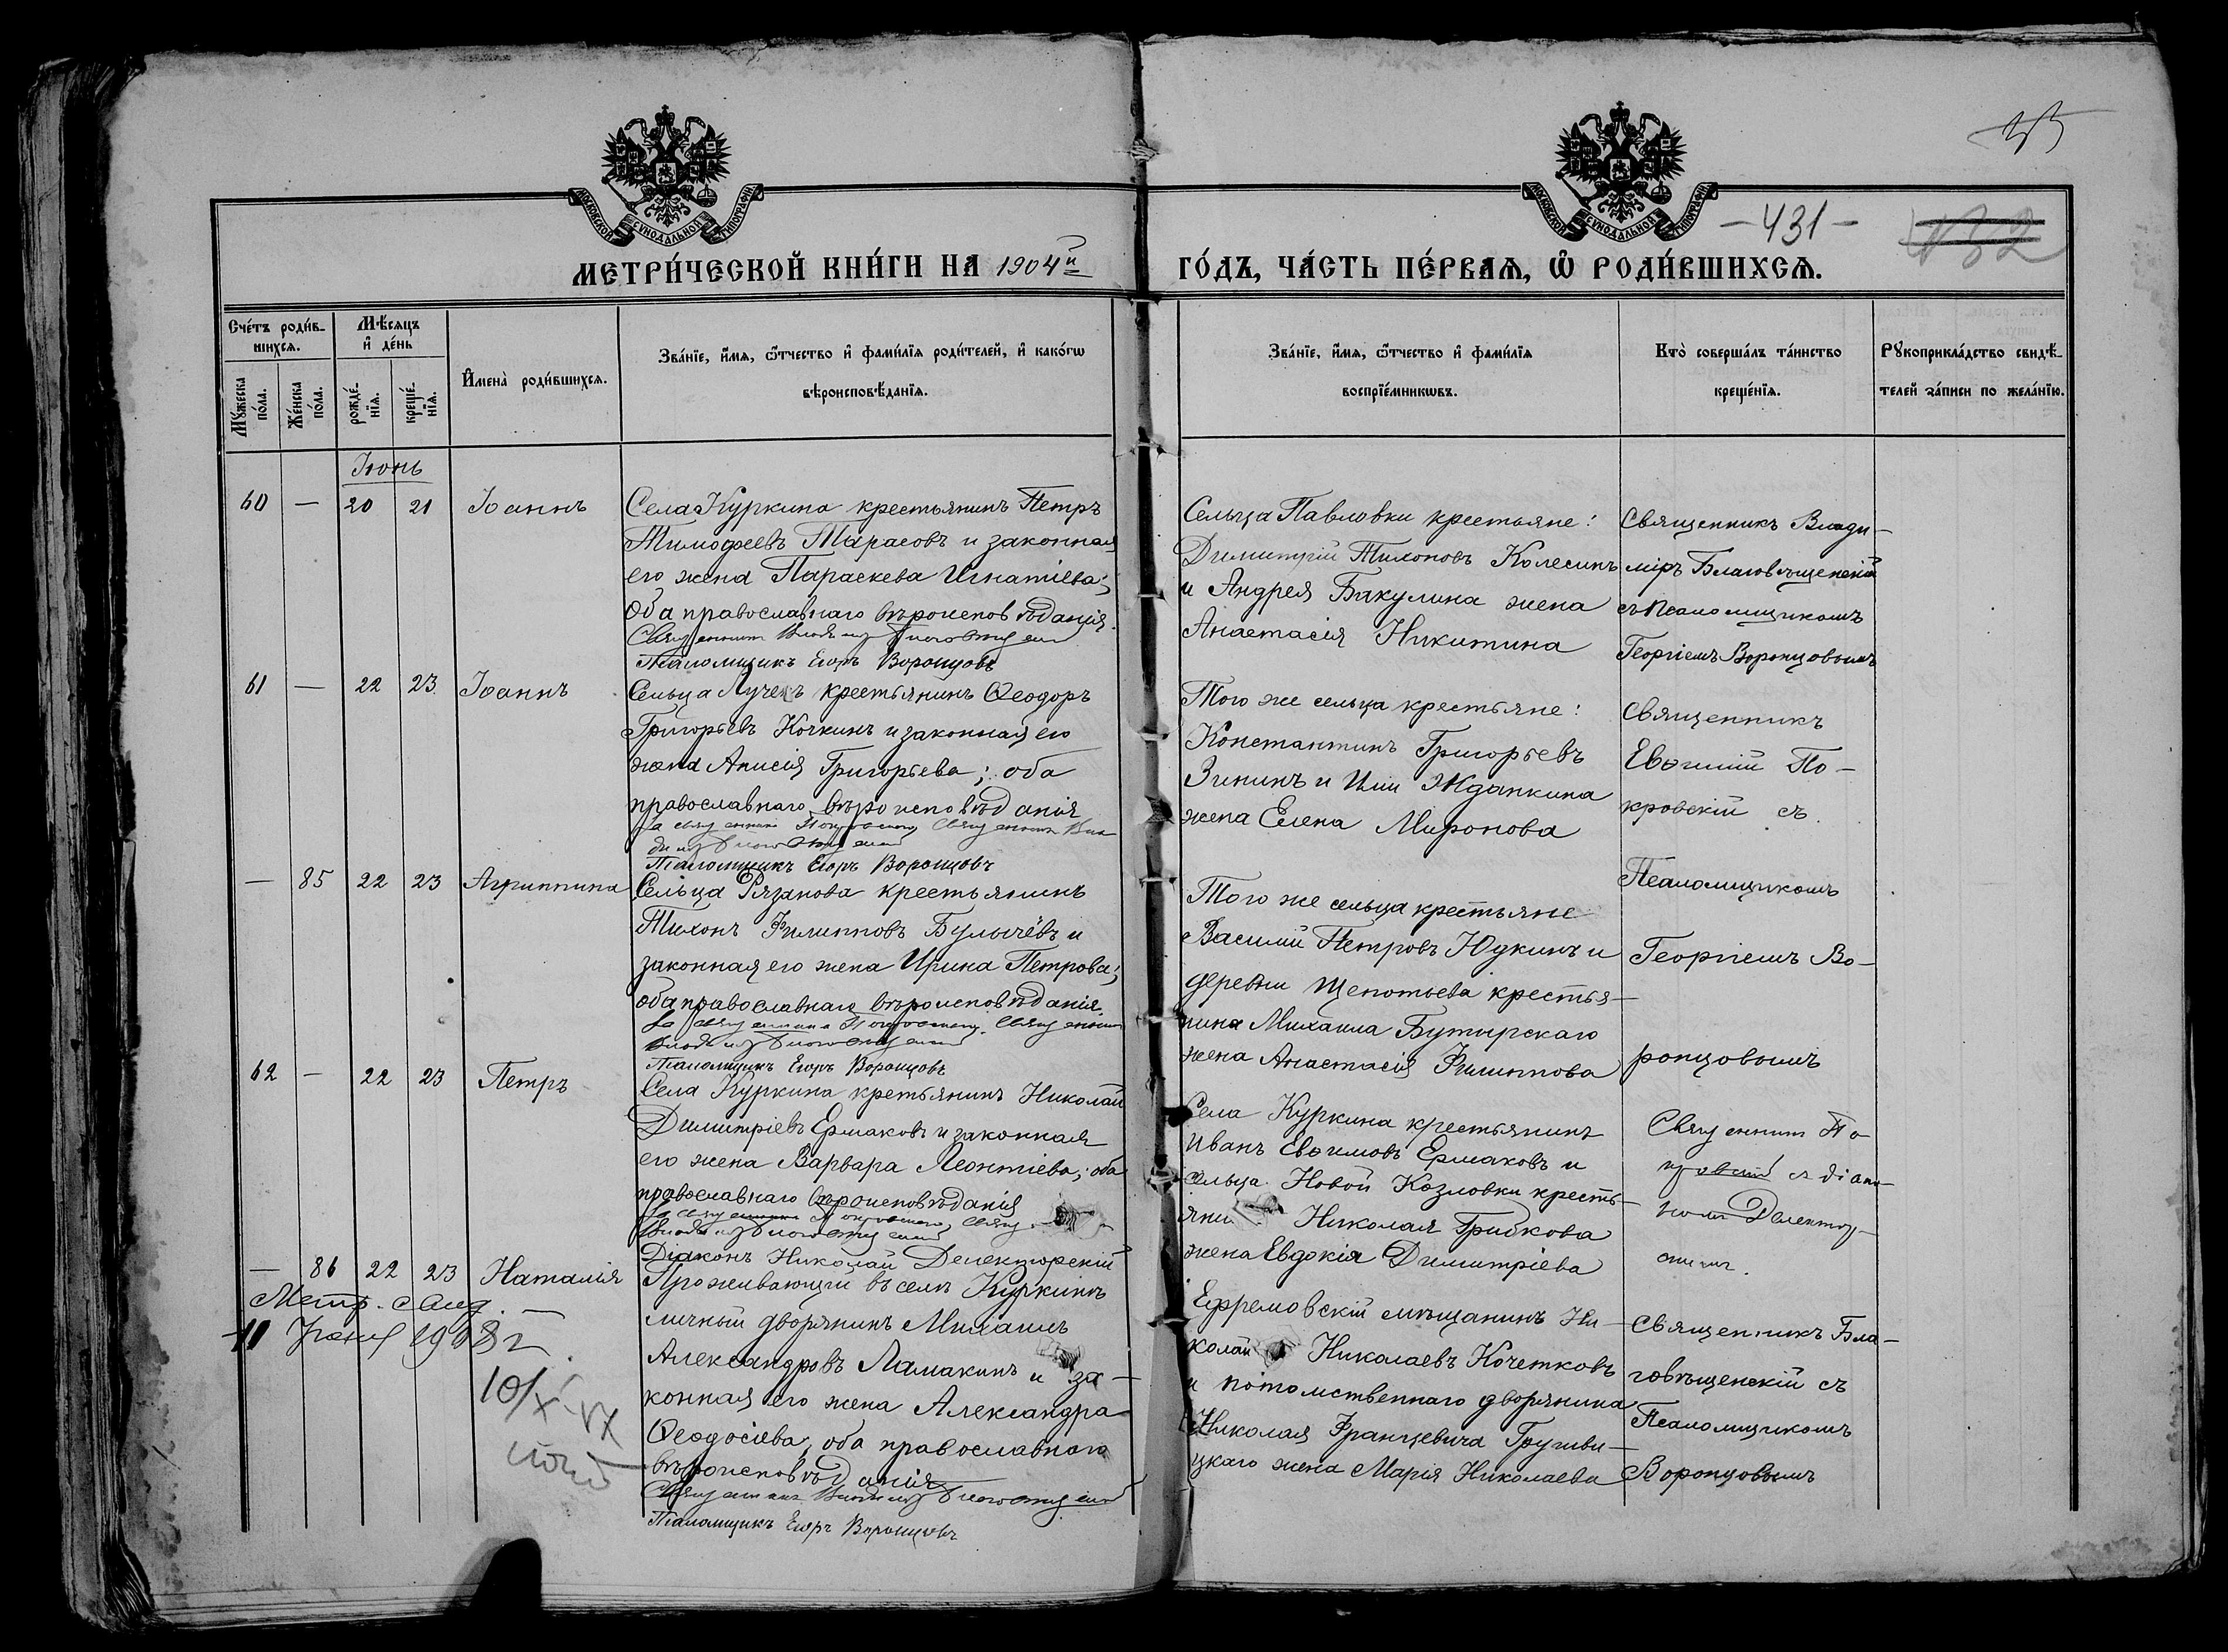 МОСКОВСКОЙ СѴНОДАЛЬНОЙ ТИПОГРАФІИ
МОСКОВСКОЙ СѴНОДАЛЬНОЙ ТИПОГРАФІИ
– 431 –
432
МЕТРИ́ЧЕСКОЙ КНИ́ГИ НА 1904й
ГО́ДЪ, ЧА́СТЬ ПЕ́РВАѦ, Ѿ РОДИ́ВШИХСѦ.
Сче́тъ роди́в-
шихсѧ.
Мꙋ́жеска по́ла.
Же́нска по́ла.
Мѣ́сѧцъ и҆ де́нь
рожде́-нїѧ.
креще́-нїѧ.
И҆мена̀ роди́вшихсѧ.
Зва́нїе, и҆́мѧ, ѻ҆́тчество и҆ фами́лїѧ роди́телей, и҆ како́гѡ
вѣроисповѣ́данїѧ.
Зва́нїе, и҆́мѧ, ѻ҆́тчество и҆ фами́лїѧ
воспрїе́мникѡвъ.
Кто̀ соверша́лъ та́инство
креще́нїѧ.
Рꙋкоприкла́дство свидѣ́-
телей за́писи по жела́нїю.
Іюнь
60 — 20 21 Іоаннъ
Села Куркина крестьянинъ Петръ
Тимофеевъ Тарасовъ и законная
его жена Параскева Игнатіева;
оба православнаго вѣроисповѣданія.
Священникъ Владиміръ Благовѣщенскій
Псаломщикъ Егоръ Воронцовъ
Сельца Павловки крестьяне:
Димитрій Тихоновъ Колесинъ
и Андрея Бакулина жена
Анастасія Никитина
Священникъ Влади-
міръ Благовѣщенскій
съ Псаломщикомъ
Георгіемъ Воронцовымъ
61 — 22 23 Іоаннъ
Сельца Лучекъ крестьянинъ Ѳеодоръ
Григорьевъ Кочкинъ и законная его
жена Анисія Григорьева; оба
православнаго вѣроисповѣданія
За священника Покровскаго Священникъ Вла-
диміръ Благовѣщенскій
Псаломщикъ Егоръ Воронцовъ
Того же сельца крестьяне:
Константинъ Григорьевъ
Зининъ и Іліи Жданкина
жена Елена Миронова
Священникъ
Евѳимій По-
кровскій съ
Псаломщикомъ
Георгіемъ Во-
ронцовымъ
— 85 22 23 Агриппина
Сельца Рязанова крестьянинъ
Тихонъ Филипповъ Булычёвъ и
законная его жена Ирина Петрова;
оба православнаго вѣроисповѣданія.
За священника Покровскаго. Священникъ
Владиміръ Благовѣщенскій
Псаломщикъ Егоръ Воронцовъ
Того же сельца крестьяне
Василій Петровъ Юдкинъ и
деревни Щепотьева крестья-
нина Михаила Бутырскаго
жена Анастасія Филиппова
62 — 22 23 Петръ
Села Куркина кретьянинъ Николай
Димитріевъ Ермаковъ и законная
его жена Варвара Леонтіева; оба
православнаго вѣроисповѣданія
За священника Покровскаго, Священникъ
Владиміръ Благовѣщенскій
Діаконъ Николай Делекторскій
Села Куркина крестьянинъ
Иванъ Евѳимовъ Ермаковъ и
сельца Новой Козловки кресть-
яни Николая Грибкова
жена Евдокія Димитріева
Священникъ По
кровскій съ діако-
номъ Делектор-
скимъ.
— 86 22 23 Наталія
Проживающій въ селѣ Куркинѣ
личный дворянинъ Михаилъ
Александровъ Ламакинъ и за-
конная его жена Александра
Ѳеодосіева, оба православнаго
вѣроисповѣданія
Священникъ Владиміръ Благовѣщенскій
Псаломщикъ Егоръ Воронцовъ
Ефремовскій мѣщанинъ Ни-
колай Николаевъ Кочетковъ
и потомственнаго дворянина
Николая Францевича Гружеви-
цкаго жена Марія Николаева
Священникъ Бла-
говѣщенскій съ
Псаломщикомъ
Воронцовымъ
Метр.
1908 г.